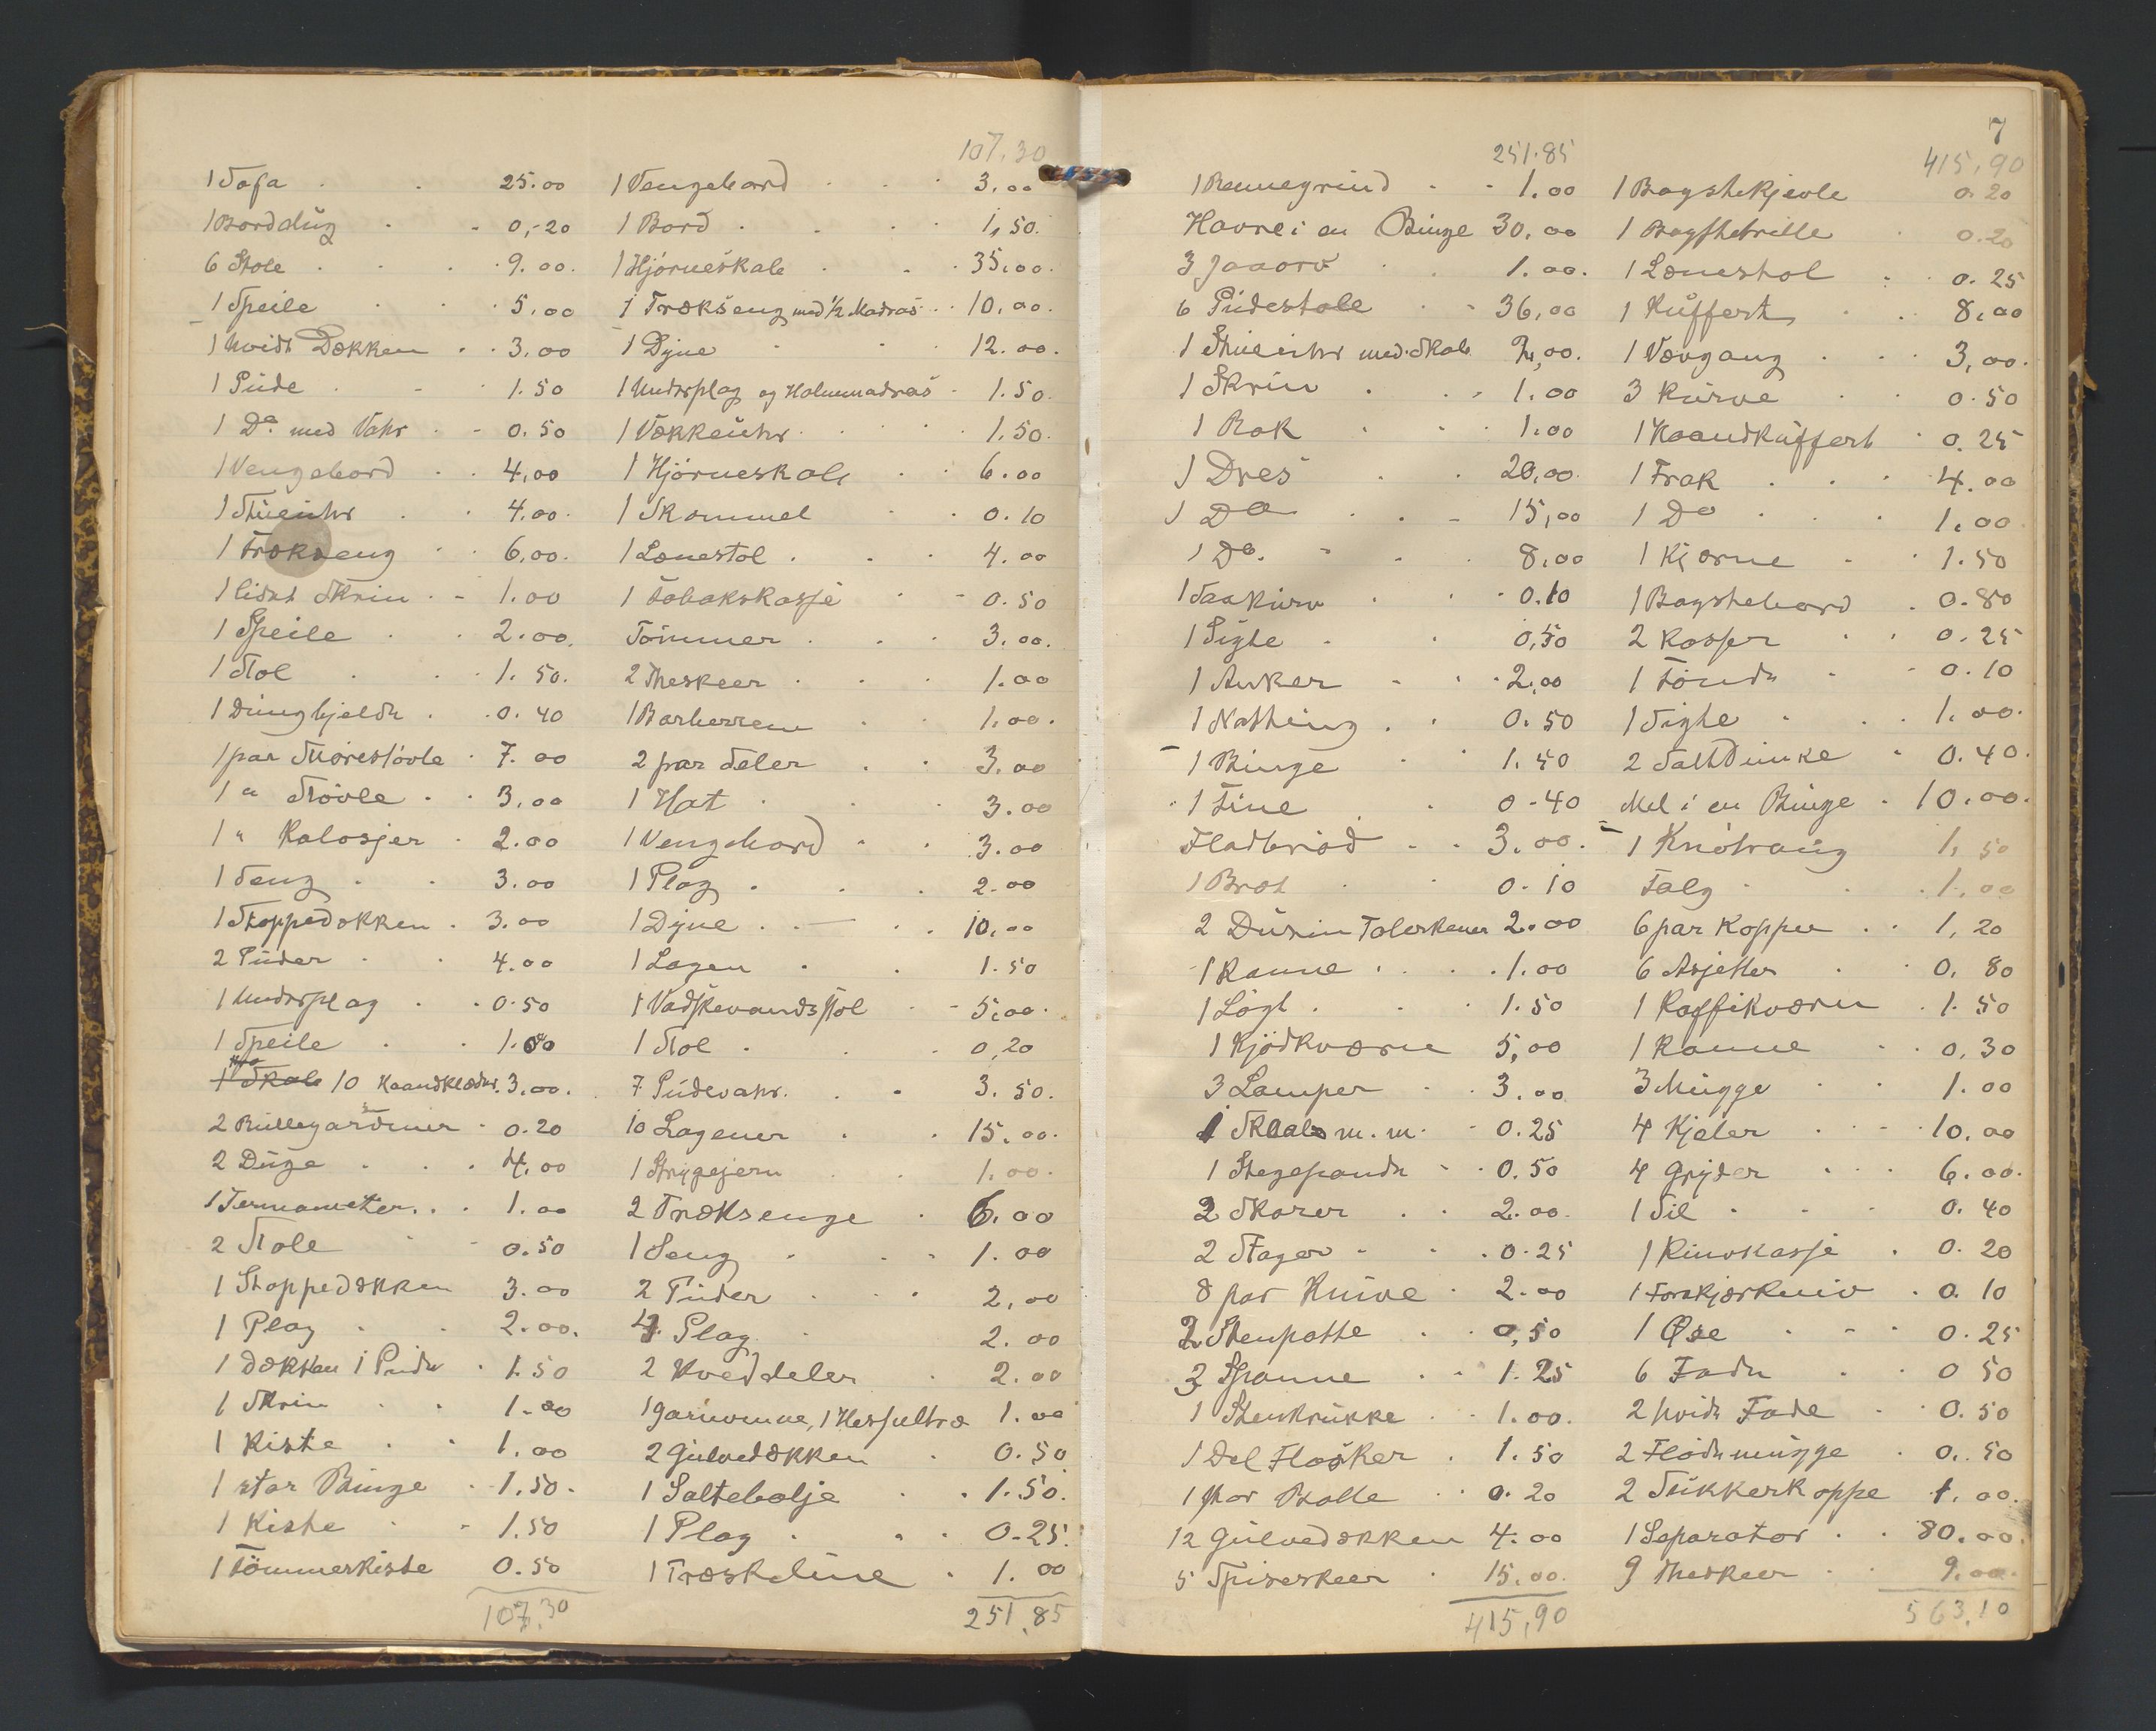 1 Sofa . . 25.00
1 Borddug . . 0,-20
6 Stole . . . 9.00.
1 Speile . . 5.00
1 hvidt Dækken . . 3.00
1 Pude . . 1.50
1 Do med Vahr . . 0.50
1 Vengebord . . 4,00
1 Stueuhr . . 4.00
1 Trækseng . . 6.00.
1 lidet Skrin . . 1.00
1 Speile . . 2.00.
1 Stol . . 1.50.
1 Dunghjeldr . . 0.40
1 par Skorestövle . 7.00
1 " Stövle . . 3,00
1 " Kalosjer . 2.00
1 Seng . . 3.00
1 Stoppedækken . 3.00
2 Puder . . 4.00
1 Underplag . . 0.50
1 Speile . . 1.00
10 Haandklædr. 3.00.
2 Rullegardiner . 0.20
2 Duge . . . 4.00
1 Termometer . . . 1.00
2 Stole . . 0.50
1 Stoppedækken 3.00
1 Plag . . 2.00.
1 Dækken 1 Pude . 1.50
1 Skrin . . 1.00
1 Kiste . . 1.00
1 stor Binge . 1.50.
1 Kiste . . 1.50
1 Tömmerkiste 0.50
107,30
107,30
1 Vengebord . . . 3,00
1 Bord . . . 1,50.
1 Hjörneskab . . . 35.00.
1 Trækseng med 1/2 Madras . . 10,00.
1 Dyne . . 12.00.
1 Underplag og Halmmadras . 1.50.
1 Vækkeuhr . . . 1,50.
1 Hjörneskab . . 6.00
1 Skammel . . 0.10
1 Lænestol . . . 4.00
1 Tobakskasse . . 0.50
Tömmer . . . 3.00.
2 Theskeer . . . 1.00
1 Barberrem . . 1.00.
2 par Seler . . 3.00
1 Hat . . . 3.00
1 Vengebord . . 3.00
1 Plag . . . 2.00
1 Dyne . . . 10.00
1 Lagen . . 1.50
1 Vadskevandsstol . . 5.00.
1 Stol . . . 0,20
7 Pudevahr. . . 3.50.
10 Lagener . . 15.00.
1 Strygejern . . 1.00.
2 Træksenge . 6.00
1 Seng . . . 1.00
2 Puder . . . 2,00
4 Plag . . 2.00
2 Hveddeler . 2.00
1 Garnvinne, 1 Hespeltræ 1.00
2 Gulvedækken . 0.50
1 Saltebalje . . 1.50.
1 Plag . . . 0.25.
1 Træskline . 1.00
251,85
251.85
1 Rennegrind . . 1.00
Havre i en Binge 30.00
3 Jaaorv . . 1.00.
6 Pudestole . . 36,00
1 Stueuhr med Skab 2,00.
1 Skrin . . . 1.00
1 Rok . . . 1.00
1 Dres . . 20,00.
1 Do . . . 15,00
1 Do. . . 8,00
1 Saakurv . . . 0.10
1 Sigte . . 0,50
1 Anker . . . 2.00
1 Nathing . . 0.50
1 Binge . . 1.50
1 Tine . . 0.40
Fladbröd . . 3.00.
1 Bræt . . 0.10
2 Dusin Talerkener 2.00
1 Kanne . . . 1.00
1 Lögt . . . 1.50
1 Kjödkværn 5,00
3 Lamper . . 3.00
1 Skaal m. m. . 0.25
1 Stegepande . . 0.50
2 Skarer . . 2.00.
2 Stager . . . 0.25
8 par Knive . 2.00
2 Stenpotte . . 0,50
3 Spanne . . 1.25
1 Stenkrukke . . 1.00.
1 Del Flasker . 1.50
1 par Balle . . 0.20
12 Gulvedækken 4.00
5 Spiseskeer . 15.00.
415,90
7
415,90
1 Bagstekjevle 0.20
1 Bagstetrille . 0.20
1 Lænestol . . 0.25
1 Kuffert . . 8,00
1 Vævgang . . 3,00.
3 Kurve . . 0.50
1 Haandkuffert . 0.25
1 Frak . . . 4.00
1 Do . . . 1,00
1 Kjærne . . 1.50
1 Bagstebord . 0.80
2 Kasser . . 0.25
1 Tönde . . 0.10
1 Sigte . . . 1.00.
2 Saltdunke . 0.40.
Mel i en Binge . 10.00.
1 Knötraug 1,50
Talg . . . 1,00
6 par Kopper . . 1,20
6 Asjetter . . 0.80
1 Kaffikværn . 1.50
1 Kanne . . 0,30
3 Mugge . . 1.00
4 Kjeler . . . 10,00
4 Gryder . . . 6.00.
1 Sil . . . 0.40
1 Knivkasse . 0.20
1 Forskjærkniv . 0.10
1 Øse . . . 0.25
6 Fade . . 0 50
2 hvide Fade . . 0.50
2 Flödemugge . 0.50
2 Sukkerkoppe 1.00.
1 Separator . . 80.00.
9 Theskeer . . 9.00.
563,10